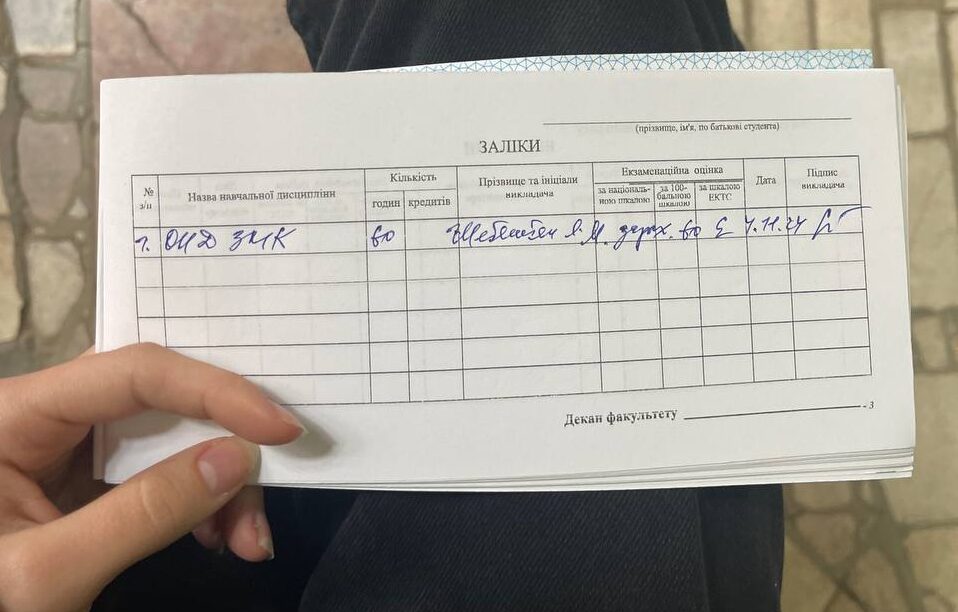 (прізвище, ім'я, по батькові студента)
ЗАЛІКИ
№ з/п
Назва навчальної дисципліни
Кількість
годин
кредитів
Прізвище та ініціали викладача
Екзаменаційна оцінка
за національ-ною шкалою
за 100-бальною шкалою
за шкалою ЕКТС
Дата
Підпис викладача
1. ОНД ЗМК 60 М. зарах. 60 E
Декан факультету
- 3